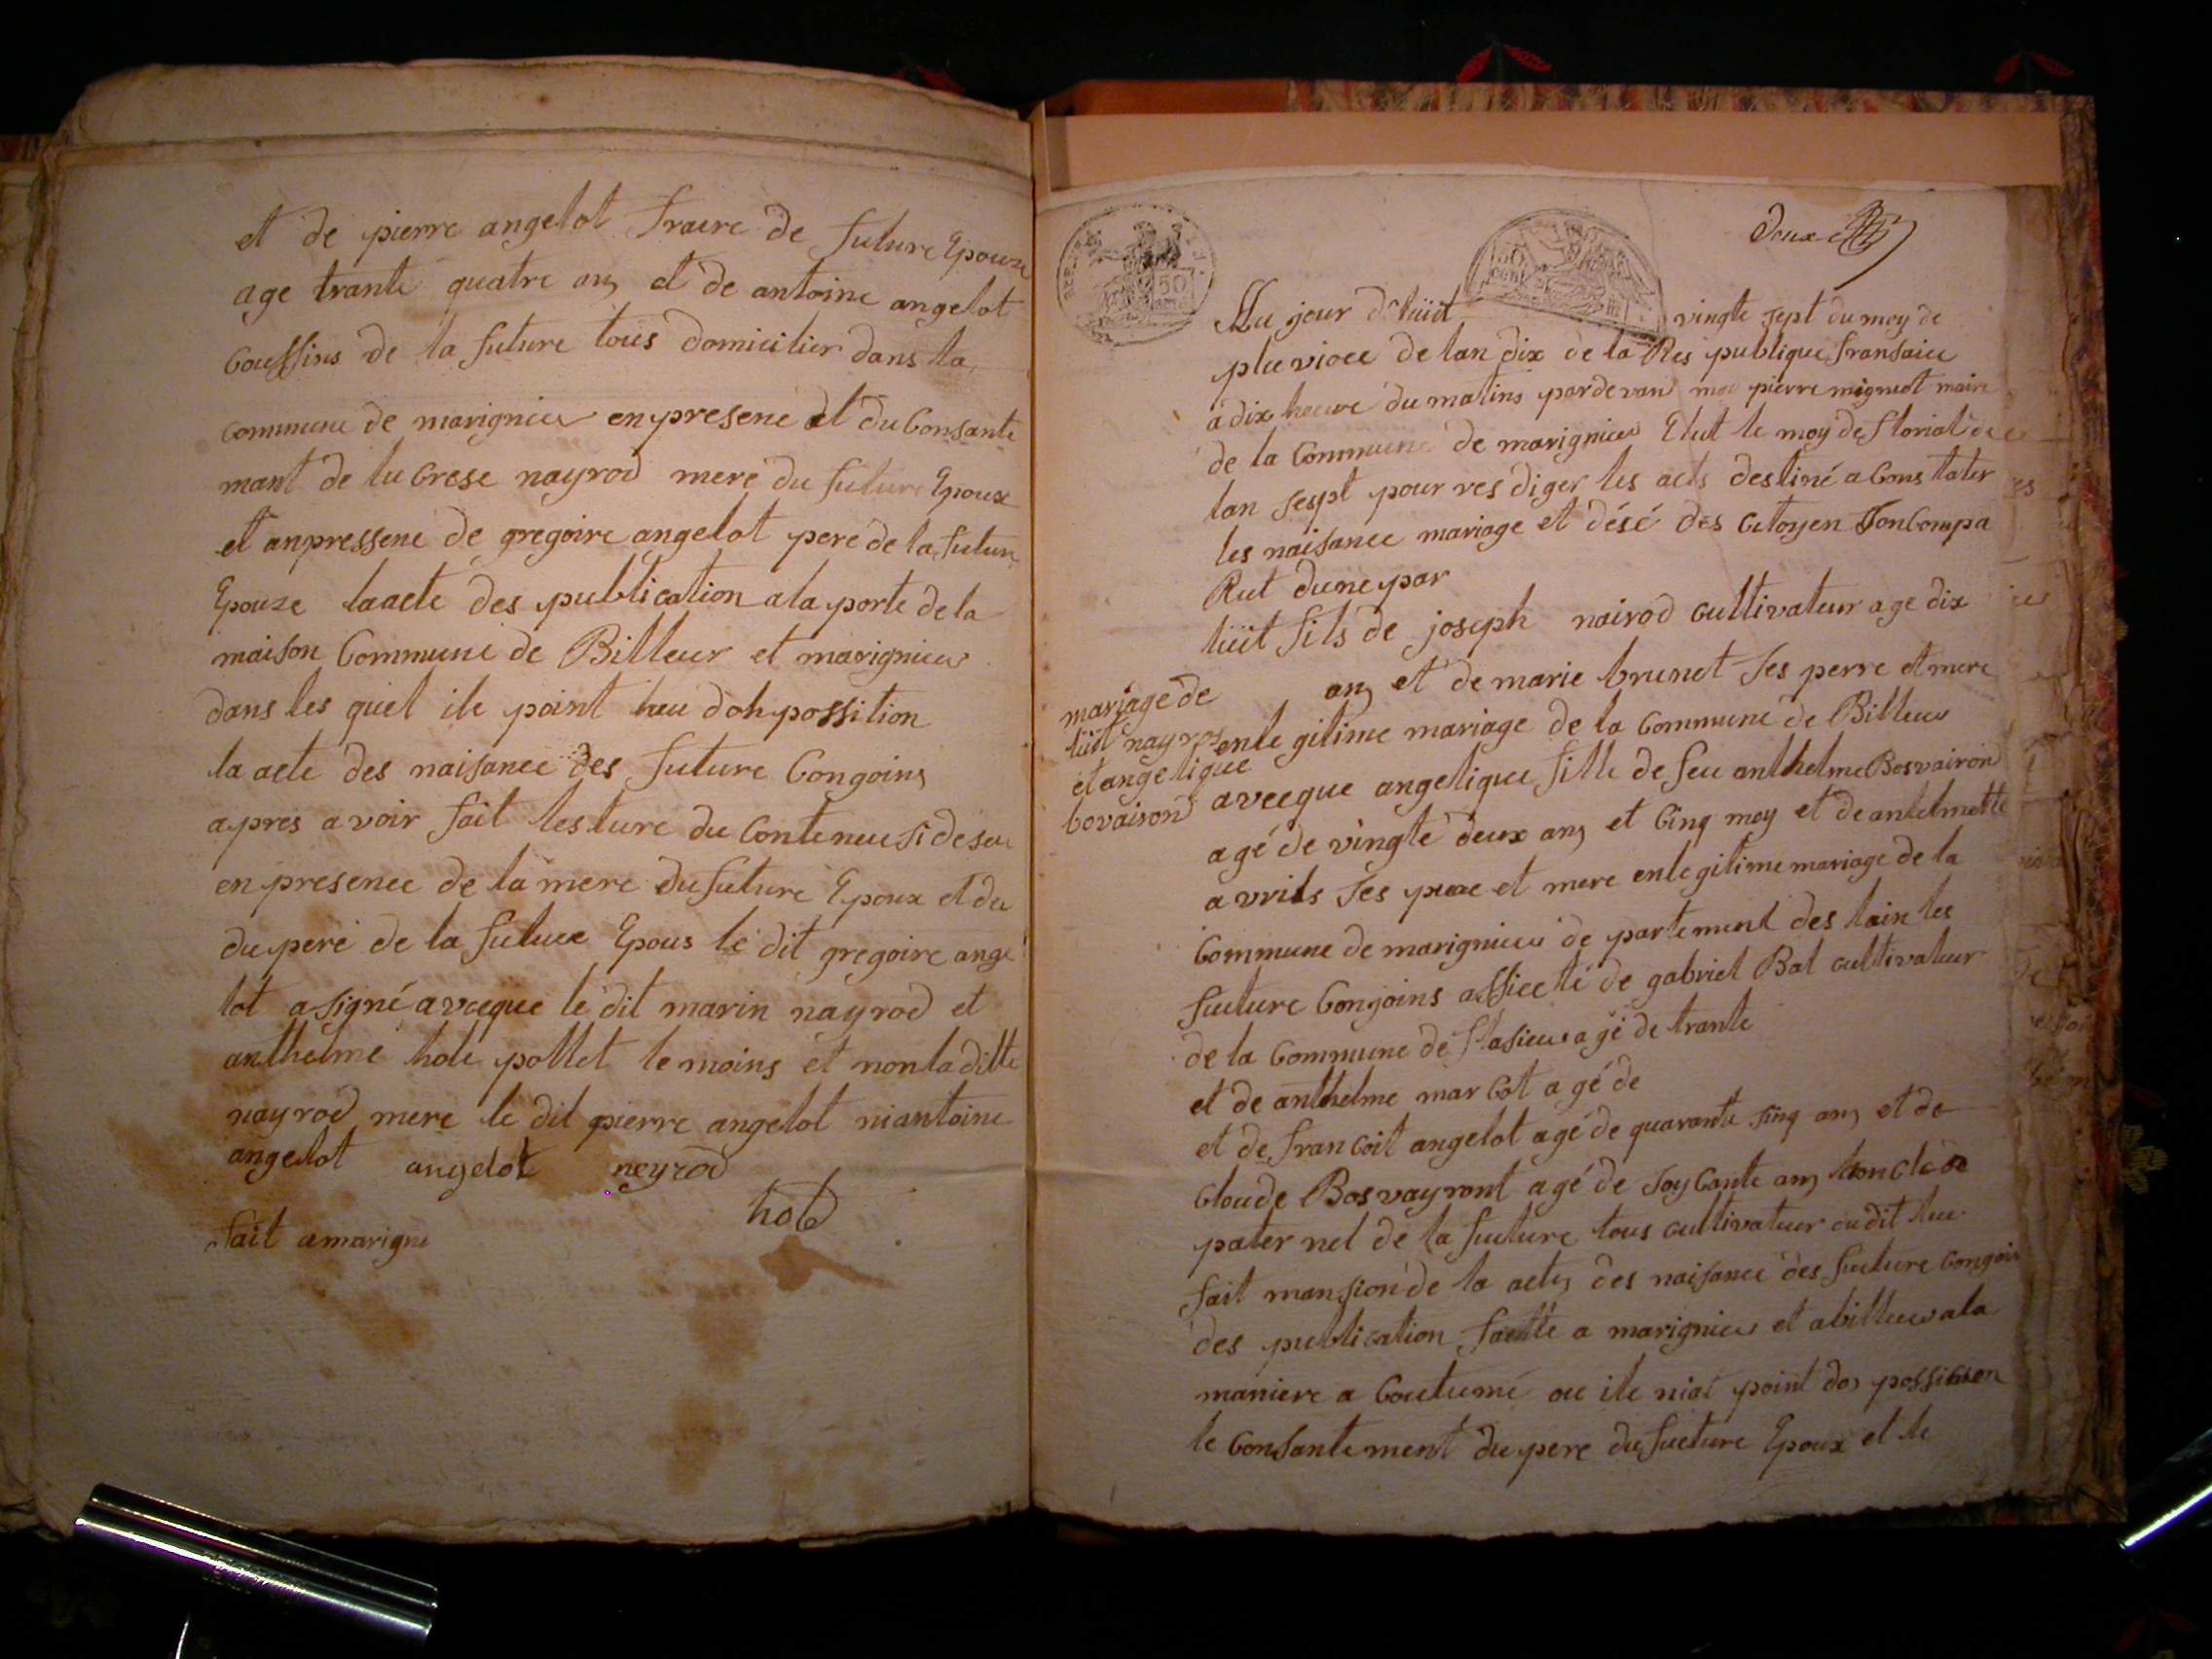 et de pierre angelot fraire de future Epouze
age trante quatre ans et de antoine angelot
Coussins de la future tous domicilier dans la
commune de marignieu en presene et du Consante
mant de lucrese nayrod mere du future Epoux
et anpressene de gregoire angelot pere de la future
Epouze laacte des publication a la porte de la
maison Commune de Billeur et marignieu
dans les quel ile point heu dohpossition
la acte des naisance des future Congoins
apres avoir fait lesture du Conteneu si deseu
en presence de la mere du future Epoux et du
du pere de la future Epous le dit gregoire ange
lot a signé avecque le dit marin nayrod et
anthelme hole pollet temoins et non la ditte
nayrod mere le dit pierre angelot ni antoine
angelot angelot neyrod
hole
fait a marigni
Deux
50
50 cent
Au jour d'huit vingte sept du moy de
pluvioce de lan dix de la Res publique fransaice
a dix heure du matins pardevan moi pierre mignot maire
de la Commune de marignieu Elut le moy de florial de
lan sespt pour res diger les acts destiné a Cons tater
les naisance mariage et désé des Citoyen Sonlompa
Rut dune par
lüit fils de joseph nairod cultivateur age dix
ans et de marie brunet ses perre et mere
mariage de
lüit nayrod
et angelique
bovairon
en le gitime mariage de la Commune de Billeu
avecque angelique fille de feu anthelme Bosvairon
agé de vingte deux ans et Cinq moy et de antelmette
avrils ses pere et mere en legitime mariage de la
Commune de marignieu de partement des lain les
future Congoins assiecté de gabriel Bal cultivateur
de la Commune de flasieu agé de trante
et de anthelme marcot agé de
et de francoit angelot agé de quarante sinq ans et de
Cloude Bosvayront agé de soycante ans loncle
paternel de la future tous cultivateur audit lieu
fait mansion de la actes des naisance des future Congoin
des publication faitte a marignieu et abilleu a la
maniere a Coutumé ou ile niat point dos possision
le Consantement du pere du future Epoux et le